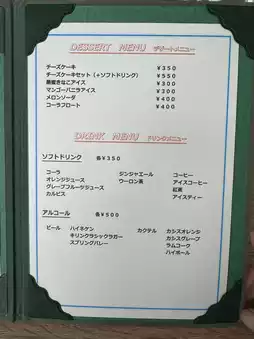 DESSERT MENU デザートメニュー
チーズケーキ ¥350
チーズケーキセット（+ソフトドリンク） ¥550
黒蜜きなこアイス ¥300
マンゴーバニラアイス ¥300
メロンソーダ ¥400
コーラフロート ¥400
DRINK MENU ドリンクメニュー
ソフトドリンク 各¥350
コーラ ジンジャエール コーヒー
オレンジジュース ウーロン茶 アイスコーヒー
グレープフルーツジュース 紅茶
カルピス アイスティー
アルコール 各¥500
ビール ハイネケン カクテル カシスオレンジ
キリンクラシックラガー カシスグレープ
スプリングバレー ラムコーク
ハイボール